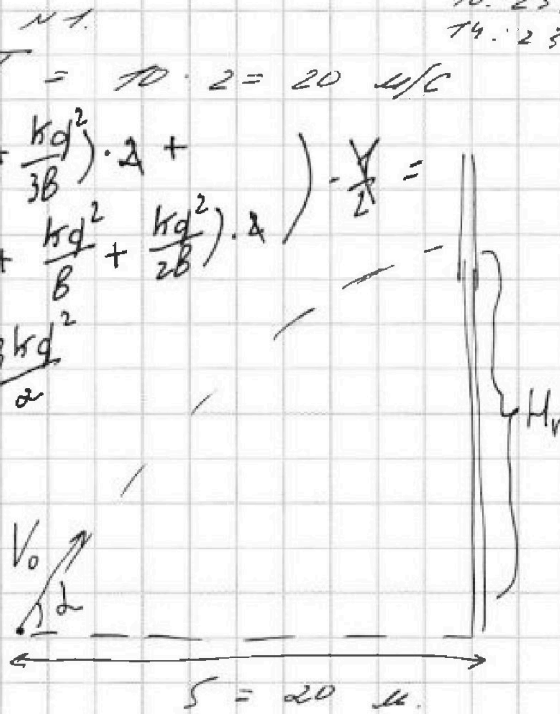 N 1.
10. 23
14. 23
= 10 · 2 = 20 м/с
+ kq²/3b) · 2 +
) · 1/2 =
+ kq²/b + kq²/2b) · 2
3kq²/2
H
V₀
α
S = 20 м.